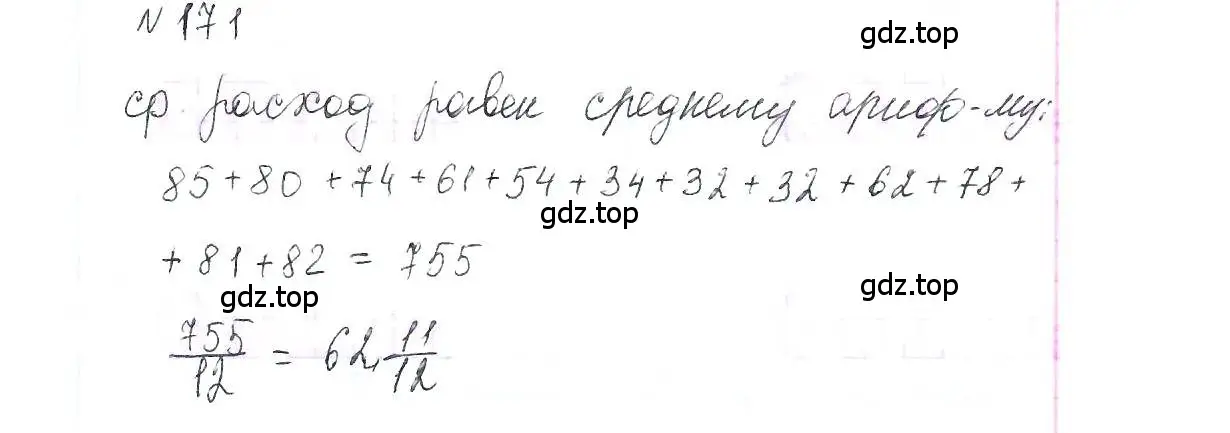 N 171
gdz.top
ср расход равен среднему ариф-му:
85+80+74+61+54+34+32+32+62+78+
gdz.top
+81+82 = 755
gdz.top
gdz.top
755/12 = 62 11/12